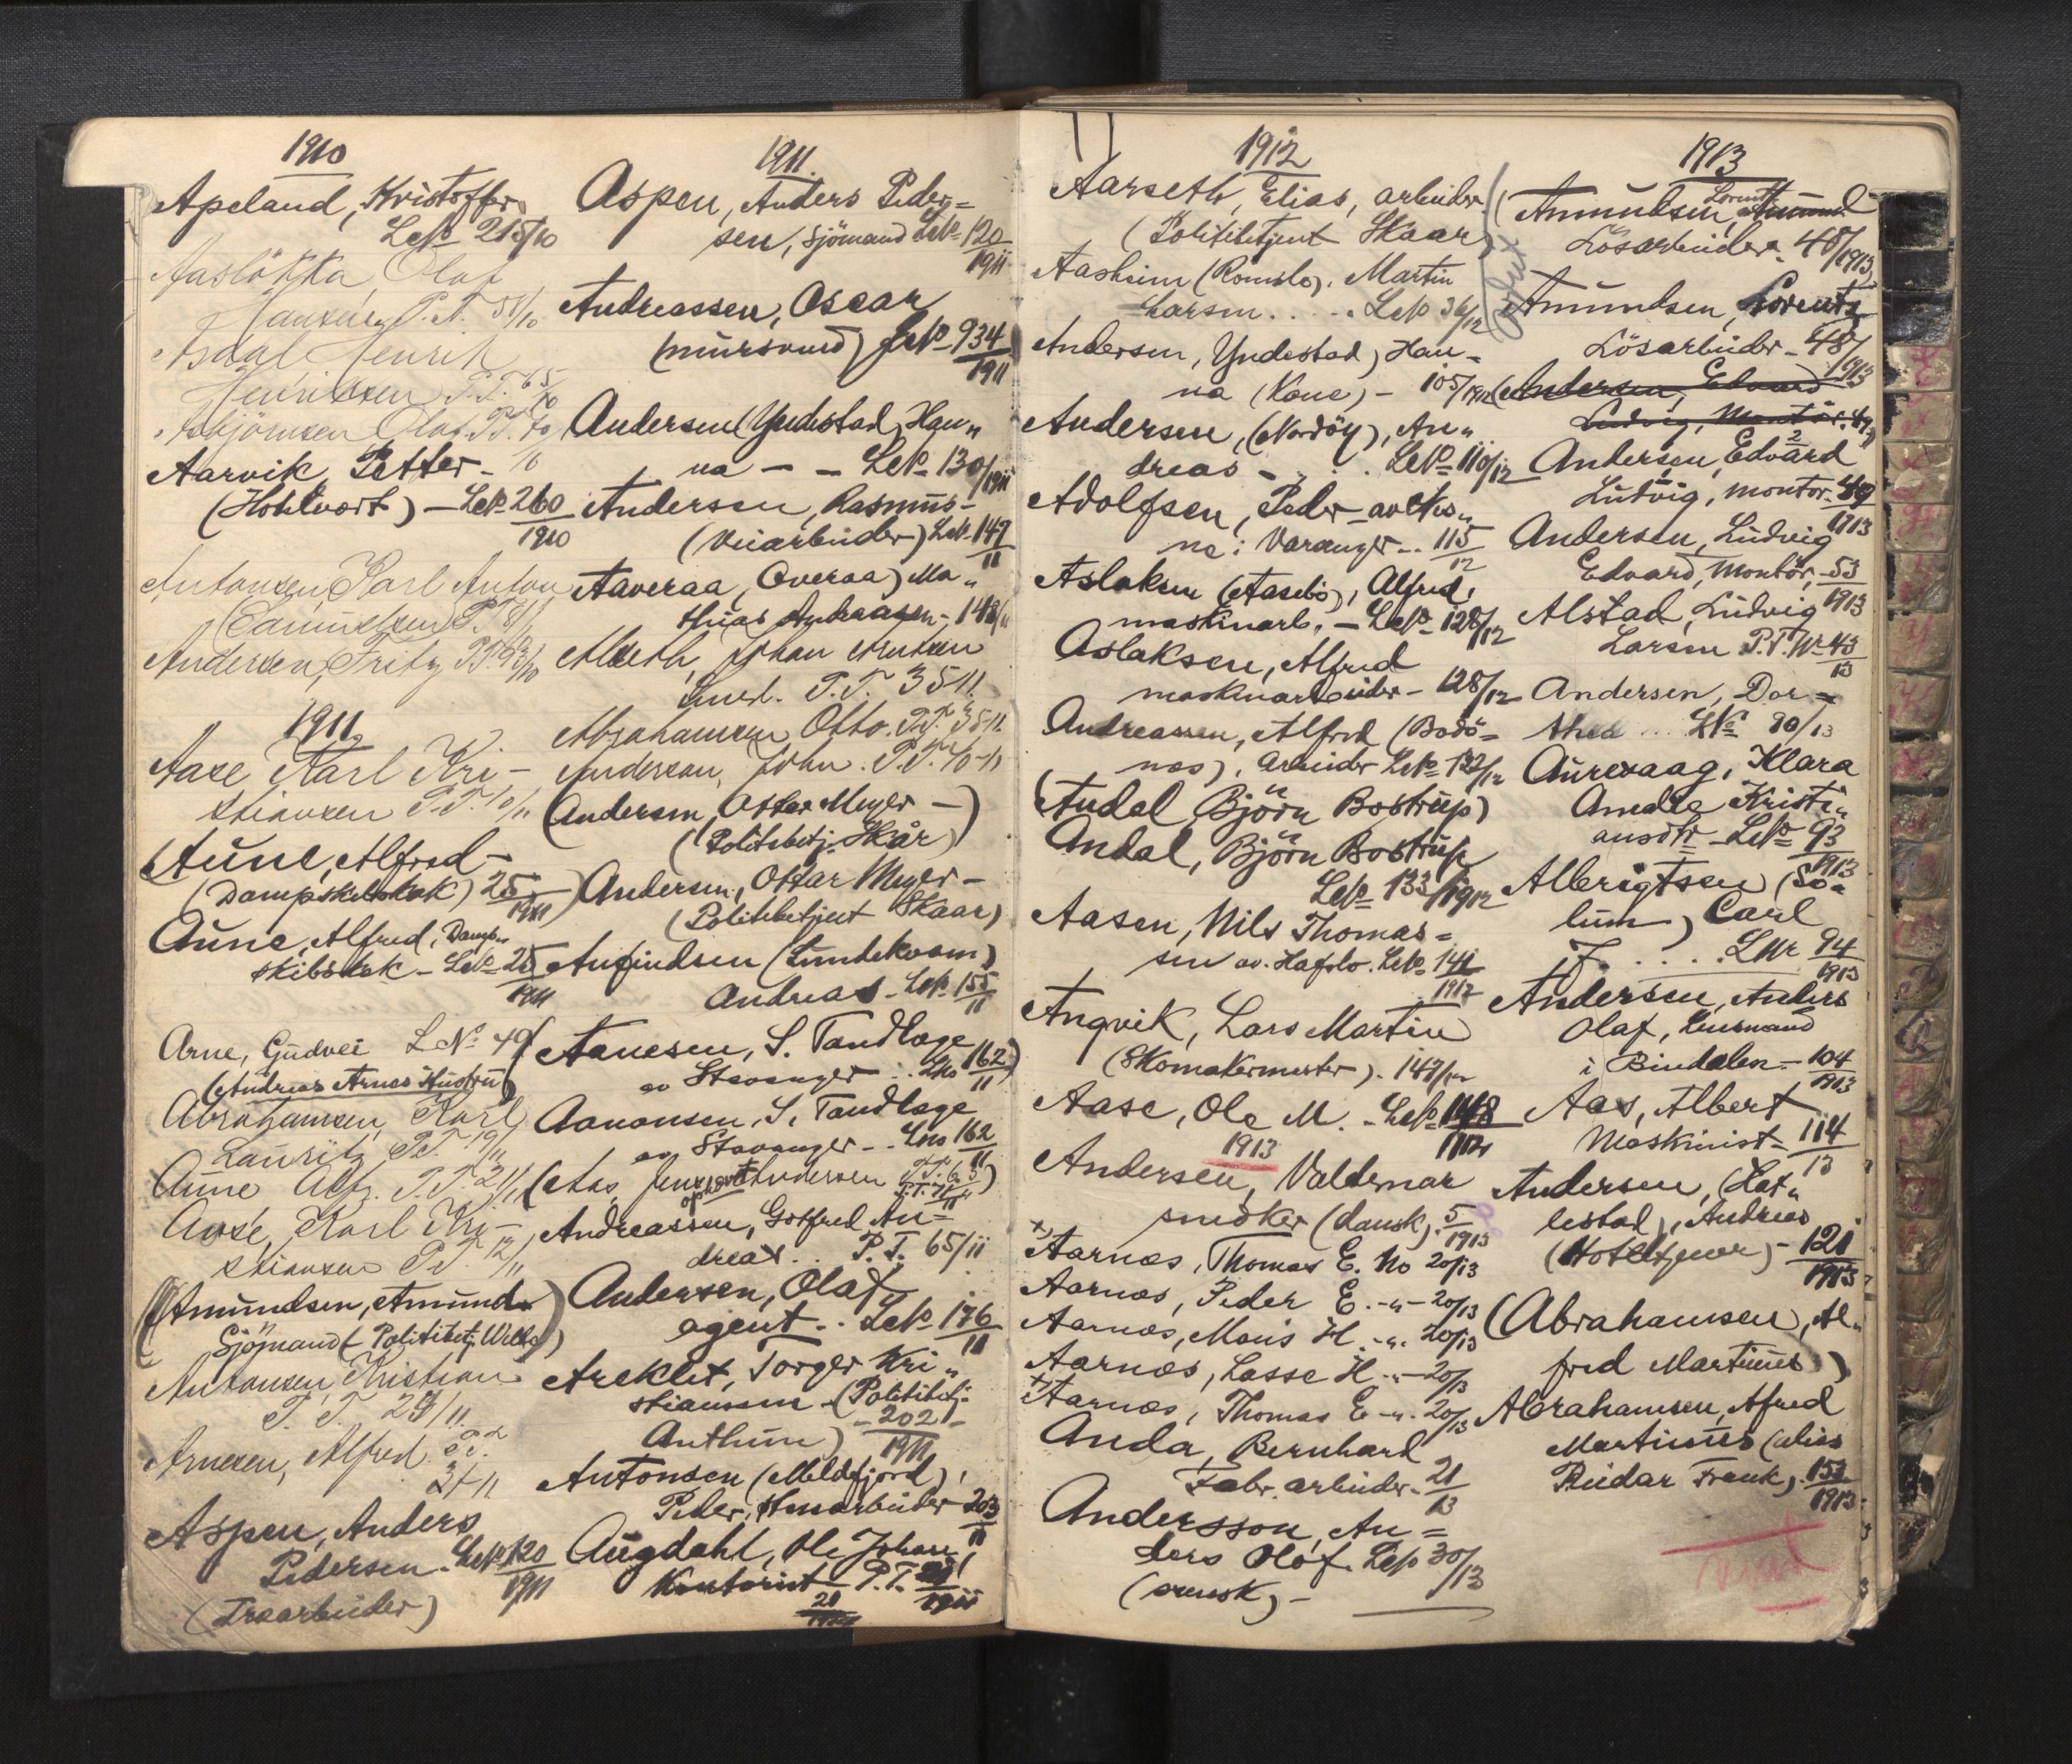 1910
Apeland, Kristoffer
LNo 215/10
Aaslökka, Olaf
Hansen P.T. 51/10
Asdal Henrik
Henriksen P.T. 65/10
Asbjörnsen Olaf P.T. 70
Aarvik, Petter - 10
(Hohlvort) - LNo 260
1910
Antonsen, Karl Anton
P.T. 8/1
Andersen, Fritz P.T. 93/10
1911
Aase Karl Kri-
stiansen P.T. 10/11
(Aune, Alfred -
(Dampskibskok) 25
1911
Aune, Alfred, Damp-
skibskok - LNo 25
1911
Arne, Gudvei LNo 49
(Andreas Arnes Hustru)
Abrahamsen, Karl
Lauritz P.T. 19/11
Aune Alf. P.T. 21/11
Aase, Karl Kri-
stiansen P.T. 12/11
(Amundsen, Amund
Sjömand (- Politibetj. Wells)
Antonsen, Kristian
P.T. 29/11
Arnesen, Alfred P.T.
31/11
Aspen, Anders
Pedersen. LNo 120
1911
(Træarbeider)
1911.
Aspen, Anders Peder=
sen, Sjömand LNo 120
1911
Andreassen, Oscar
(mursvend) JNo 934
1911
Andersen (Yndestad, Han„
na - - LNo 130/1911
Andersen, Rasmus -
(Veiarbeider) LNo 147
11
Aaveraa, Overaa) Ma„
thias Andreasen - 148/11
Johan Knutsen
P.T. 35 11.
Abrahamsen Otto. P.T. 35-11.
Anderson, John. P.T. 40-11
(Andersen, Ottar Meyer -)
(Politibetj. Skår)
Andersen, Ottar Meyer -
(Politibetjent Skaar)
Anfindsen (Lundekvam)
Andreas - LNo 155
11
(Aanesen, S. Tandlæge
av Stavanger .. LNo 162)
11
Aanonsen, S, Tandlæge
av Stavanger - . LNo 162
11
(Aas, Jens Andersen P.T. 63)
ophævet P.T. 71
11
Andreassen, Gotfred An=
dreas .. P.T. 65/11
Andersen, Olaf,
agent .. LNo 176
11
Areklet, Torger Kri„
stianssen - (Politibetj.
- 202 -
Anthun) 1911
Antonsen (Meldefjord),
Peder, Stenarbeider 203
11
Augdahl, Ole Johan
Kontorist P.T. 28
1911
28
1911
1912
Aarseth, Elias, arbeider
(Politibetjent Skaar)
Aasheim (Romslo), Martin
Larsen .... LNo 36/12
Andersen, Yndestad) Han-
na (Kone) - 105/1912
Andersen, (Nordöy), An„
dreas - . . . LNo 110/12
Adolfsen, Peder - av Nes„
ne i Varanger - . 115
12
Aslaksen (Aasebö), Alfred,
maskinarb. - LNo 128/12
Aslaksen, Alfred
maskinarbeider - 128/12
Andreassen, Alfred (Bodö=
nes), arbeider LNo 132/12
(Audal Björn Bostrup)
Andal, Björn Bostrup
LNo 133/1912
Aasen, Nils Thomas=
sen av. Hafslo. LNo 141
1912
Angvik, Lars Martin
(Skomakermester). 147/12
Aase, Ole M. - LNo 148
1912
1913
Andersen, Valdemar
snedker (dansk) 5
1913
x) Aarnæs, Thomas E. No 20/13
Aarnæs, Peder E. -"- 20/13
Aarnæs, Mons H. -"- 20/13
Aarnæs, Lasse H. -"- 20/13
x) Aarnæs, Thomas E -"- 20/13
Anda, Bernhard
Fabr. arbeider - 21
13
Andersson, An=
ders Olof. LNo 30/13
(svensk) -
1913
(Amundsen, Lorentz Amund
Lösarbeider. 48/1913
Amundsen, Lorentz
Lösarbeider - 48/1913
(Andersen, Edvard
Ludvig, Montör. 49
Andersen, Edvard
Ludvig, montör. 49
1913
Andersen, Ludvig
Edvard, Montör, 53
1913
Alstad, Ludvig
Larsen P.T. Nr. 43
13
Andersen, Dor=
thea ... LNo 80/13
Aurevaag, Klara
Amalie Kristi„
ansdtr - LNo 93
1913
Albrigtsen (So=
lum) Carl
J. . . . . LNr 94
1913
Andersen, Anders
Olaf, Lensmand
i Bindalen - 104
1913
Aas, Albert
Maskinist - 114
13
Andersen, (Hat„
lestad), Andreas
(Hoteltjener) - 121
1913
(Abrahamsen, Al„
fred Martinus)
Abrahamsen, Alfred
Martinus (alias
Reidar Frank) . 153
1913